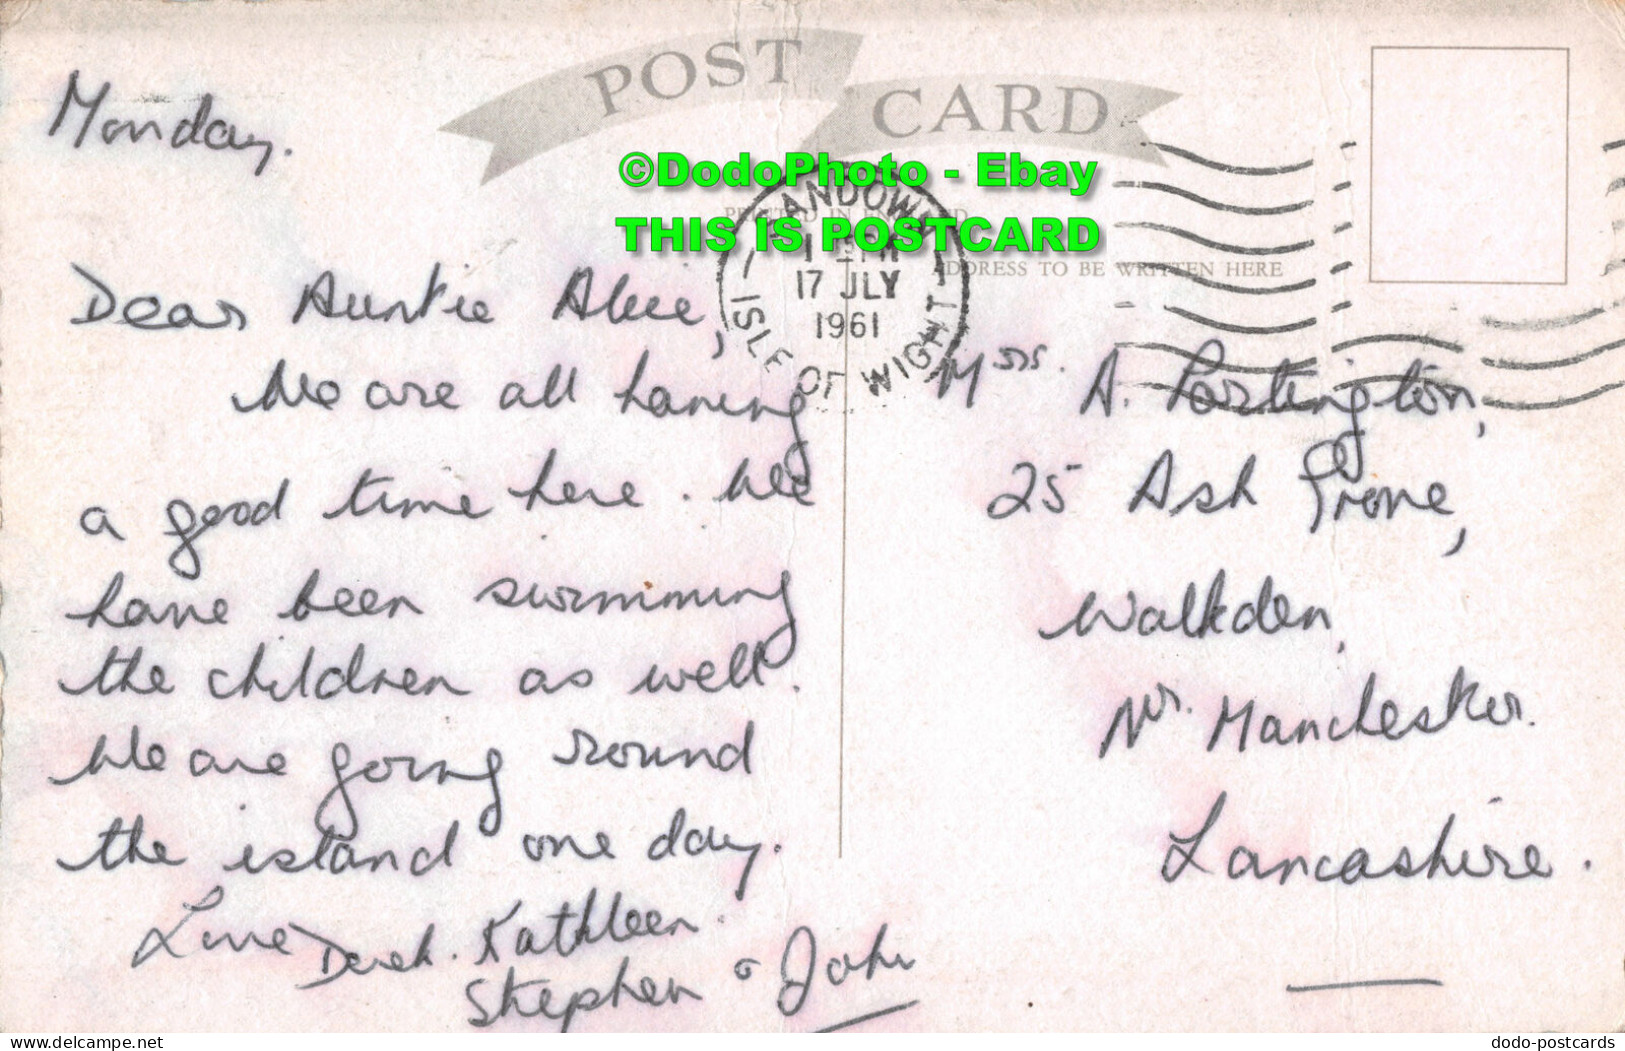 POST CARD
©DodoPhoto - Ebay
THIS IS POSTCARD
PRINTED IN ENGLAND
SANDOWN
17 JLY
1961
ISLE OF WIGHT
ADDRESS TO BE WRITTEN HERE
Monday.
Dear Auntie Alice,
We are all having
a good time here. We
have been swimming
the children as well.
We are going round
the island one day.
Love Derek. Kathleen.
Stephen & John
Mrs. A. Partington,
25 Ash Grove,
Walkden,
Nr. Manchester.
Lancashire.
delcampe.net
dodo-postcards